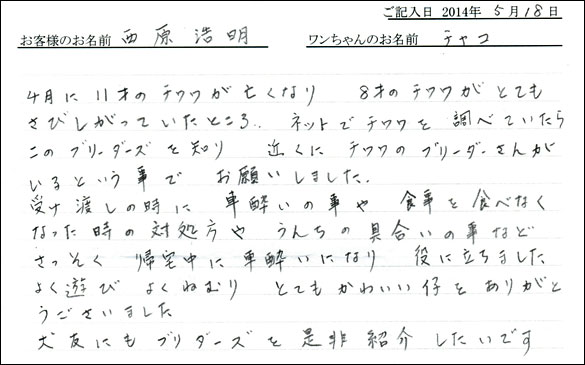 ご記入日 2014年 5月18日
お客様のお名前 西原 浩明 ワンちゃんのお名前 チャコ
4月に 11才の チワワが 亡くなり 8才の チワワが とても
さびしがって いたところ、ネットで チワワを 調べて いたら
この ブリーダーズを 知り 近くに チワワの ブリーダーさんが
いるという 事で お願いしました。
受け渡しの時に 車酔いの事や 食事を食べなく
なった時の 対処方や うんちの 具合いの事など
さっそく 帰宅中に 車酔いになり 役に立ちました
よく遊び よくねむり とても かわいい 仔を ありがと
うございました
犬友にも ブリダーズを 是非 紹介 したいです